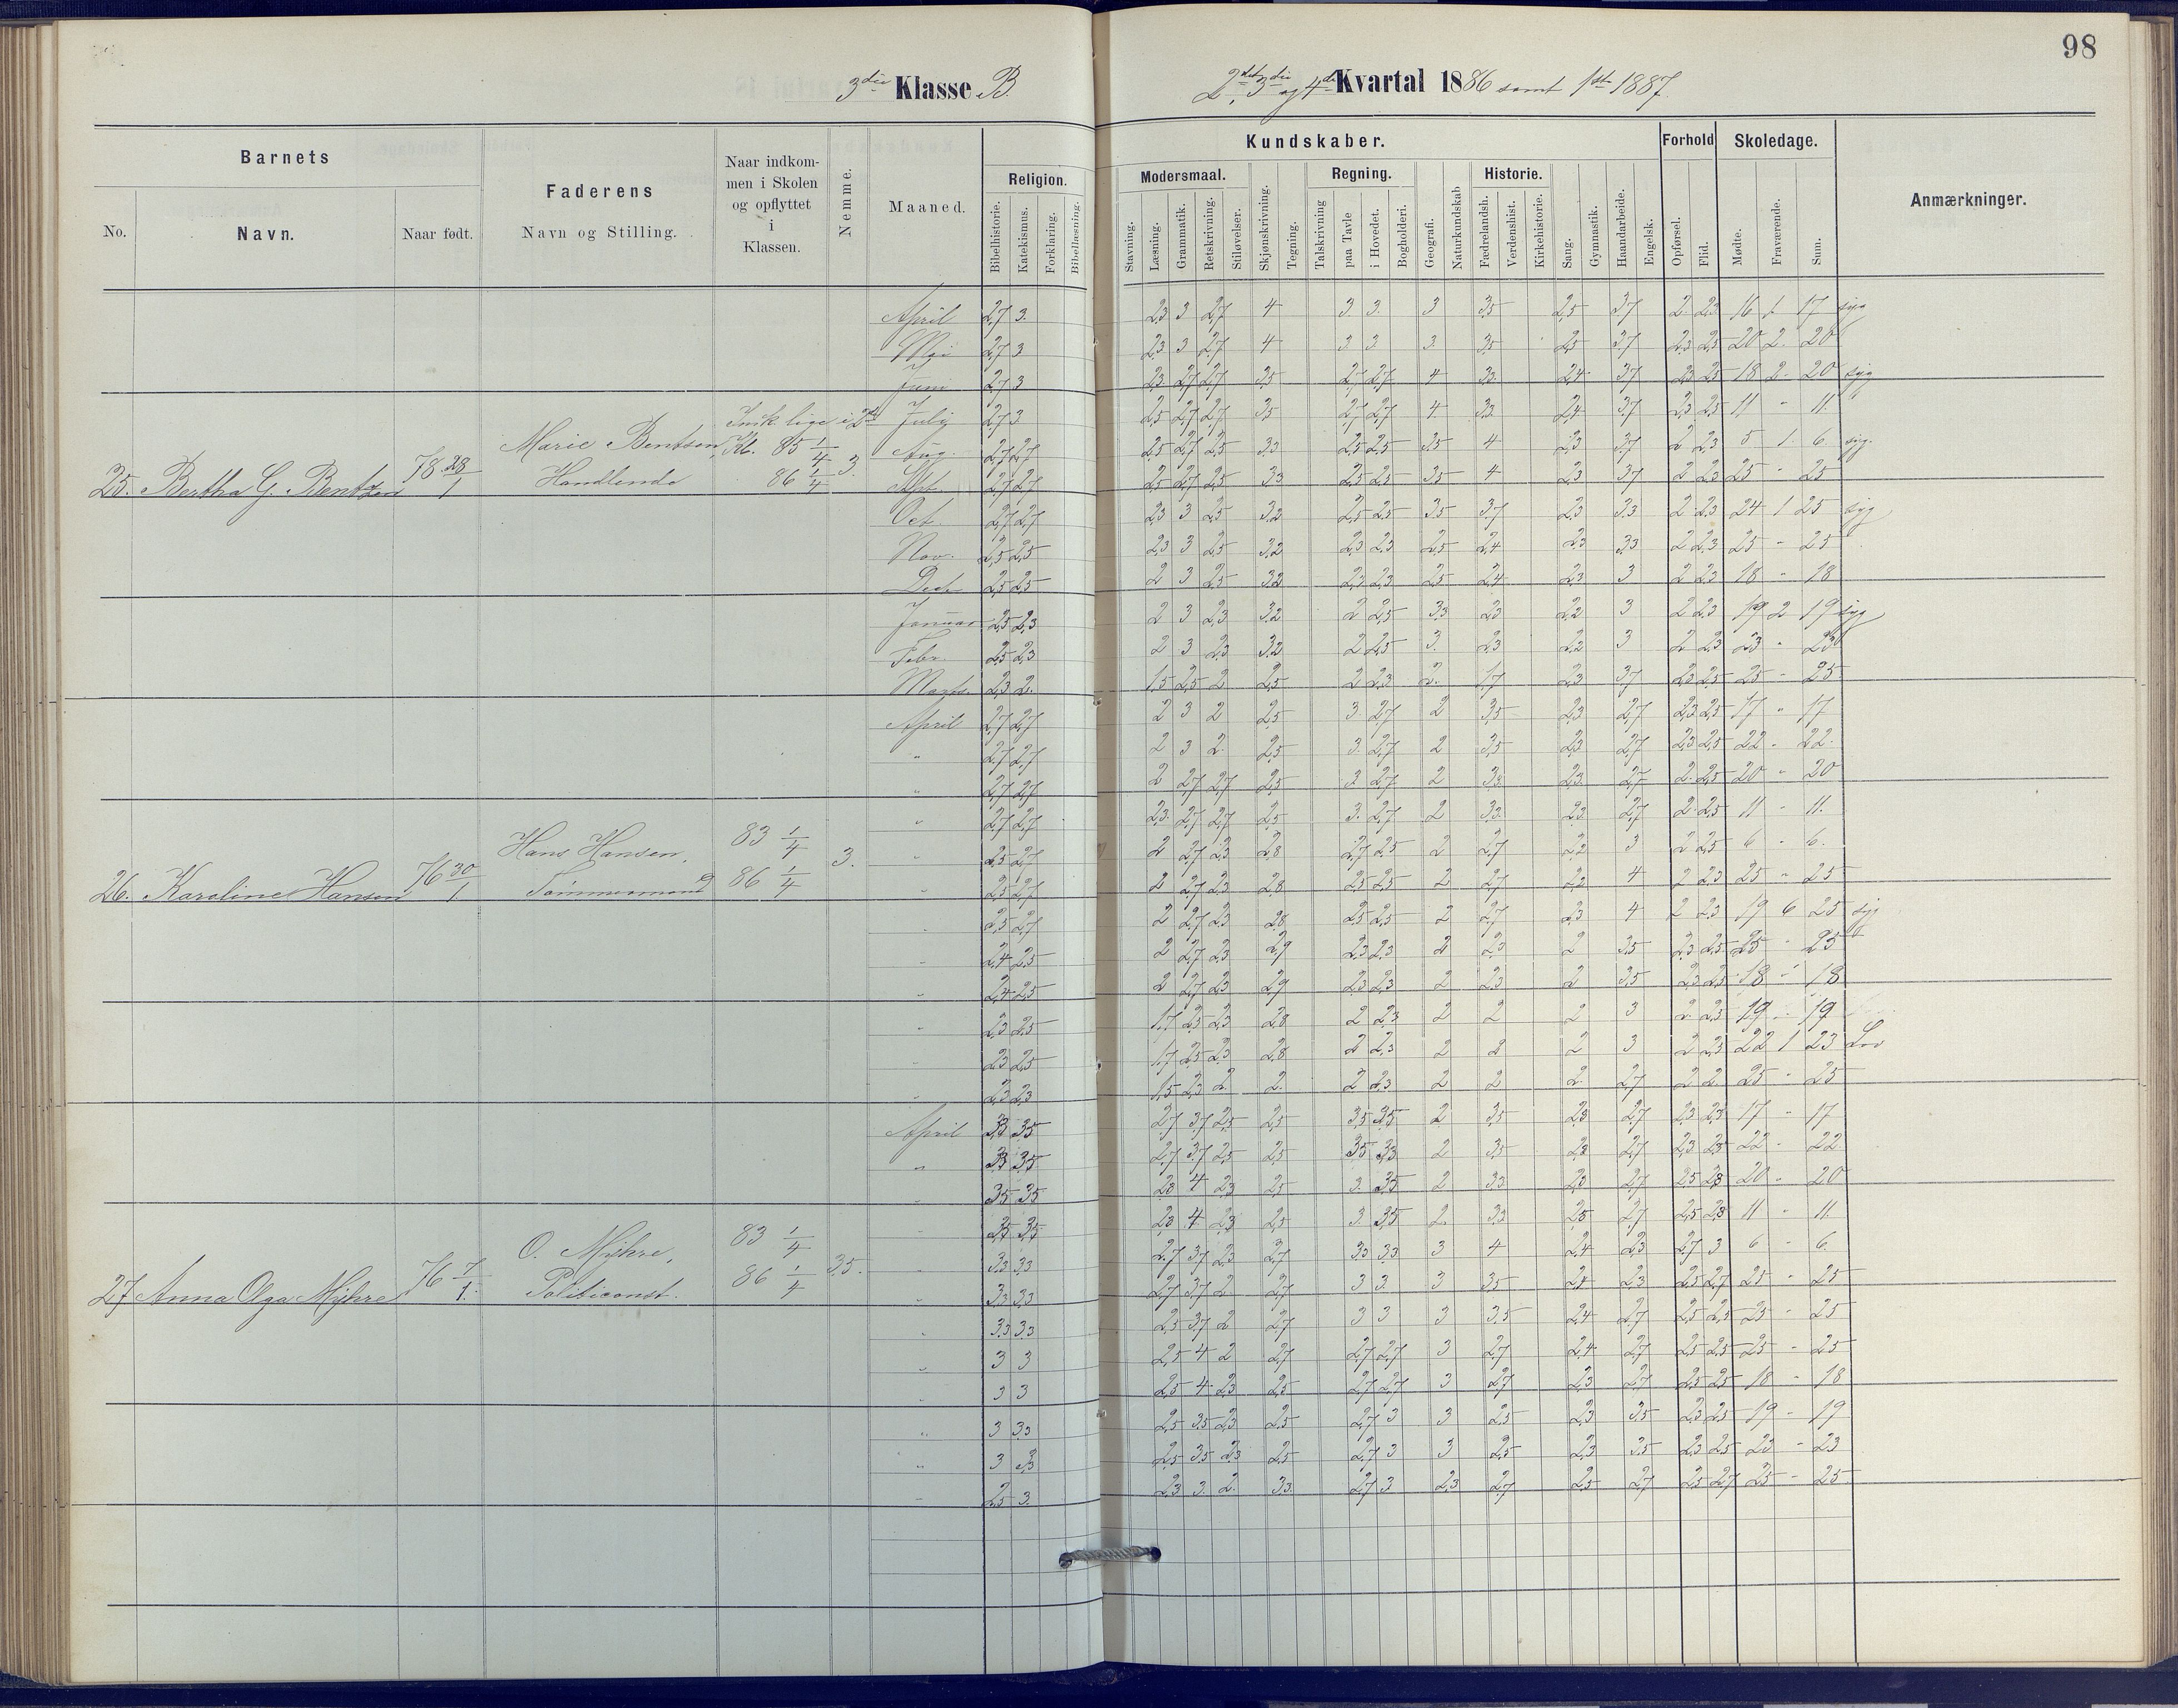 98
3die Klasse B.
2det, 3die og 4de Kvartal 1886 samt 1ste 1887.
Barnets
No.
Navn.
Naar født.
Faderens
Navn og Stilling.
Naar indkom-
men i Skolen
og opflyttet
i
Klassen.
Nemme.
Maaned.
Kundskaber.
Religion.
Bibelhistorie.
Katekismus.
Forklaring.
Bibellæsning.
Modersmaal.
Stavning.
Læsning.
Grammatik.
Retskrivning.
Stiløvelser.
Skjønskrivning.
Tegning.
Regning.
Talskrivning
paa Tavle
i Hovedet.
Bogholderi.
Geografi.
Naturkundskab
Historie.
Fædrelandsh.
Verdenshist.
Kirkehistorie.
Sang.
Gymnastik.
Haandarbeide.
Engelsk.
Forhold
Opførsel.
Flid.
Skoledage.
Mødte.
Fraværende.
Sum.
Anmærkninger.
25. Bertha G. Bentzen 78 28/1
Marie Bentsen,
Handlende
Indk lige i 2d
Kl. 85 1/4
86 1/4
3.
April 2,7 3. 2,3 3 2,7 4 3 3. 3 3,5 2,5 3,7 2 2,3 16 1 17 syg
Mai 2,7 3 2,3 3 2,7 4 3 3 3 3,5 2,5 3,7 2,3 2,5 20 2 20
Juni 2,7 3 2,3 2,7 2,7 3,5 2,7 2,7 4 3,3 2,4 3,7 2,3 2,5 18 2 20 syg
July 2,7 3 2,5 2,7 2,7 3,5 2,7 2,7 4 3,3 2,4 3,7 2,3 2,5 11 " 11.
Aug. 2,7 2,7 2,5 2,7 2,5 3,3 2,5 2,5 3,5 4 2,3 3,7 2 2,3 5 1 6. syg.
Spt. 2,7 2,7 2,5 2,7 2,5 3,3 2,5 2,5 3,5 4 2,3 3,7 2 2,3 25 " 25
Oct. 2,7 2,7 2,3 3 2,5 3,2 2,5 2,5 3,5 3,7 2,3 3,3 2 2,3 24 1 25 syg
Nov. 2,5 2,5 2,3 3 2,5 3,2 2,3 2,3 2,5 2,4 2,3 3,3 2 2,3 25 " 25
Decb. 2,5 2,5 2 3 2,5 3,2 2,3 2,3 2,5 2,4 2,3 3 2 2,3 18 " 18
Januar 2,5 2,3 2 3 2,3 3,2 2 2,5 3,3 2,3 2,2 3 2 2,3 19 2 19 syg
Febr. 2,5 2,3 2 3 2,3 3,2 2 2,5 3. 2,3 2,2 3 2 2,3 23 " 23
Marts. 2,3 2. 1,5 2,5 2 2,5 2 2,3 2. 1,7 2,3 3,7 2,3 2,5 25 " 25
26. Karoline Hansen 76 30/1
Hans Hansen,
Tømmermand
83 1/4
86 1/4
3.
April 2,7 2,7 2 3 2 2,5 3. 2,7 2 3,5 2,3 2,7 2,3 2,5 17 " 17
" 2,7 2,7 2 3 2. 2,5 3. 2,7 2 3,5 2,3 2,7 2,3 2,5 22 " 22.
" 2,7 2,7 2 2,7 2,7 2,5 3 2,7 2 3,3 2,3 2,7 2 2,5 20 " 20
" 2,7 2,7 2,3 2,7 2,7 2,5 3. 2,7 2 3,3 2,3 2,7 2 2,5 11 " 11.
" 2,5 2,7 2 2,7 2,3 2,8 2,7 2,5 2 2,7 2,2 3 2 2,5 6 " 6.
" 2,5 2,7 2 2,7 2,3 2,8 2,5 2,5 2 2,7 2,2 4 2 2,3 25 " 25
" 2,5 2,7 2 2,7 2,3 2,8 2,5 2,5 2 2,7 2,3 4 2 2,3 19 6 25 syg
" 2,4 2,5 2 2,7 2,3 2,9 2,3 2,3 2 2,3 2 3,5 2,3 2,5 25 " 25
" 2,4 2,5 2 2,7 2,3 2,9 2,3 2,3 2 2,3 2 3,5 2,3 2,5 18 " 18
" 2,3 2,5 1,7 2,5 2,3 2,8 2 2,3 2 2 2 3 2 2,3 19 " 19
" 2,3 2,5 1,7 2,5 2,3 2,8 2 2,3 2 2 2 3 2 2,3 22 1 23 Lov
" 2,3 2,3 1,5 2,3 2 2. 2 2,3 2 2 2 2,7 2 2 25 " 25
27 Anna Olga Myhre 76 7/1
O. Myhre,
Politiconst.
83 1/4
86 1/4
3,5.
April 3,3 3,5 2,7 3,7 2,5 2,5 3,5 3,5 2 3,5 2,3 2,7 2,3 2,3 17 " 17
" 3,3 3,5 2,7 3,7 2,5 2,5 3,5 3,3 2 3,5 2,3 2,7 2,3 2,3 22 " 22
" 3,5 3,5 2,3 4 2,3 2,5 3. 3,5 2 3,3 2,3 2,7 2,5 2,8 20 " 20
" 3,5 3,5 2,3 4 2,3 2,5 3. 3,5 2 3,3 2,5 2,7 2,5 2,8 11 " 11
" 3,3 3,3 2,7 3,7 2,3 2,7 3,3 3,3 3 4 2,4 2,3 2,7 3 6 " 6.
" 3,3 3,3 2,7 3,7 2 2,7 3 3 3 3,5 2,4 2,3 2,5 2,7 25 " 25
" 3,3 3,3 2,5 3,7 2 2,7 3 3 3 3,5 2,4 2,7 2,5 2,5 25 " 25
" 3 3 2,5 4 2 2,7 2,7 2,7 3 2,7 2,4 2,7 2,5 2,5 25 " 25
" 3 3 2,5 4 2,3 2,5 2,7 2,7 3 2,7 2,3 2,7 2,5 2,5 18 " 18
" 3 3,3 2,5 3,5 2,3 2,5 2,7 3 3 2,5 2,3 3,5 2,3 2,5 19 " 19
" 3 3,3 2,5 3,5 2,3 2,5 2,7 3 3 2,5 2,3 3,5 2,3 2,5 23 " 23
" 2,5 3. 2,3 3. 2. 3,3. 2,7 3 2,3 2,7 2,5 2,7 2,5 2,7 25 " 25